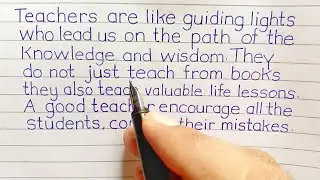 Teachers are like guiding lights
who lead us on the path of the
Knowledge and wisdom. They
do not just teach from books
they also teach valuable life lessons.
A good teacher encourage all the
students, their mistakes.